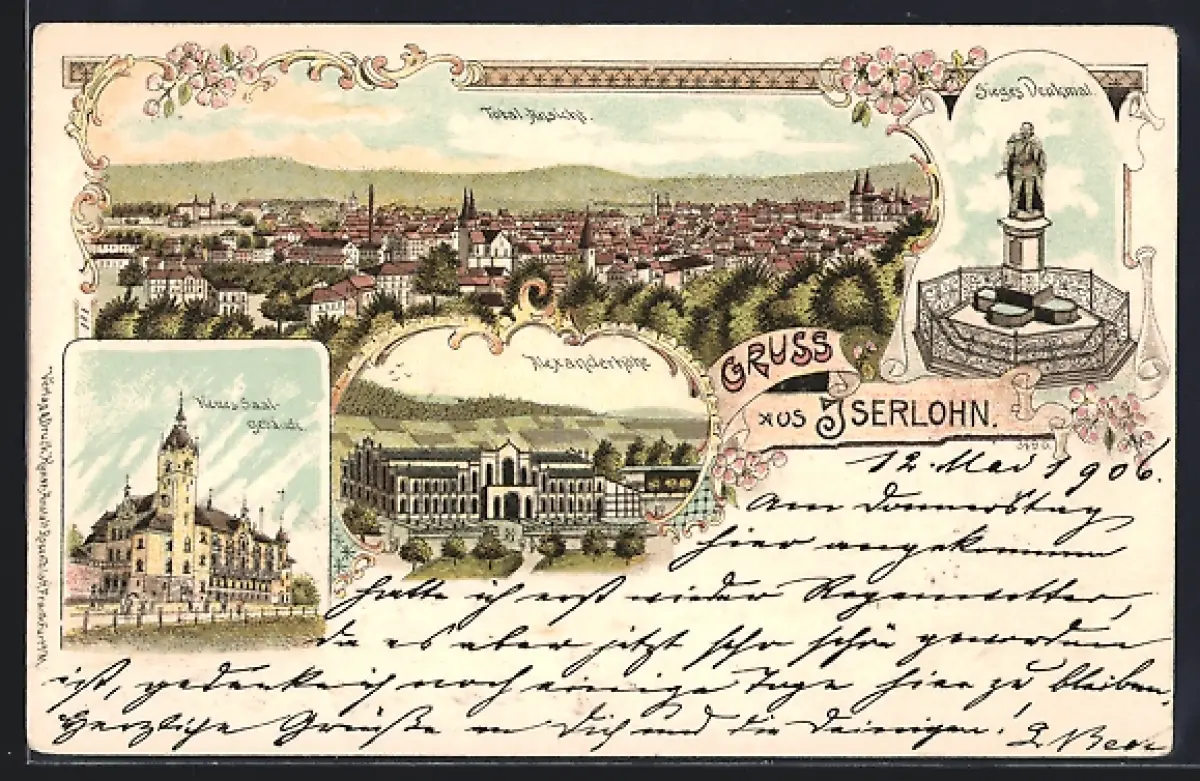 Total-Ansicht.
Sieges Denkmal.
Alexanderhöhe
Neues Saal-
gebäude
GRUSS
AUS ISERLOHN.
12. Mai 1906.
Am Donnerstag
hier angekommen
hatte ich erst wieder Regenwetter,
da es aber jetzt sehr schön geworden
ist, gedenke ich noch einige Tage hier zu bleiben.
Herzliche Grüße an Dich und die Deinigen!